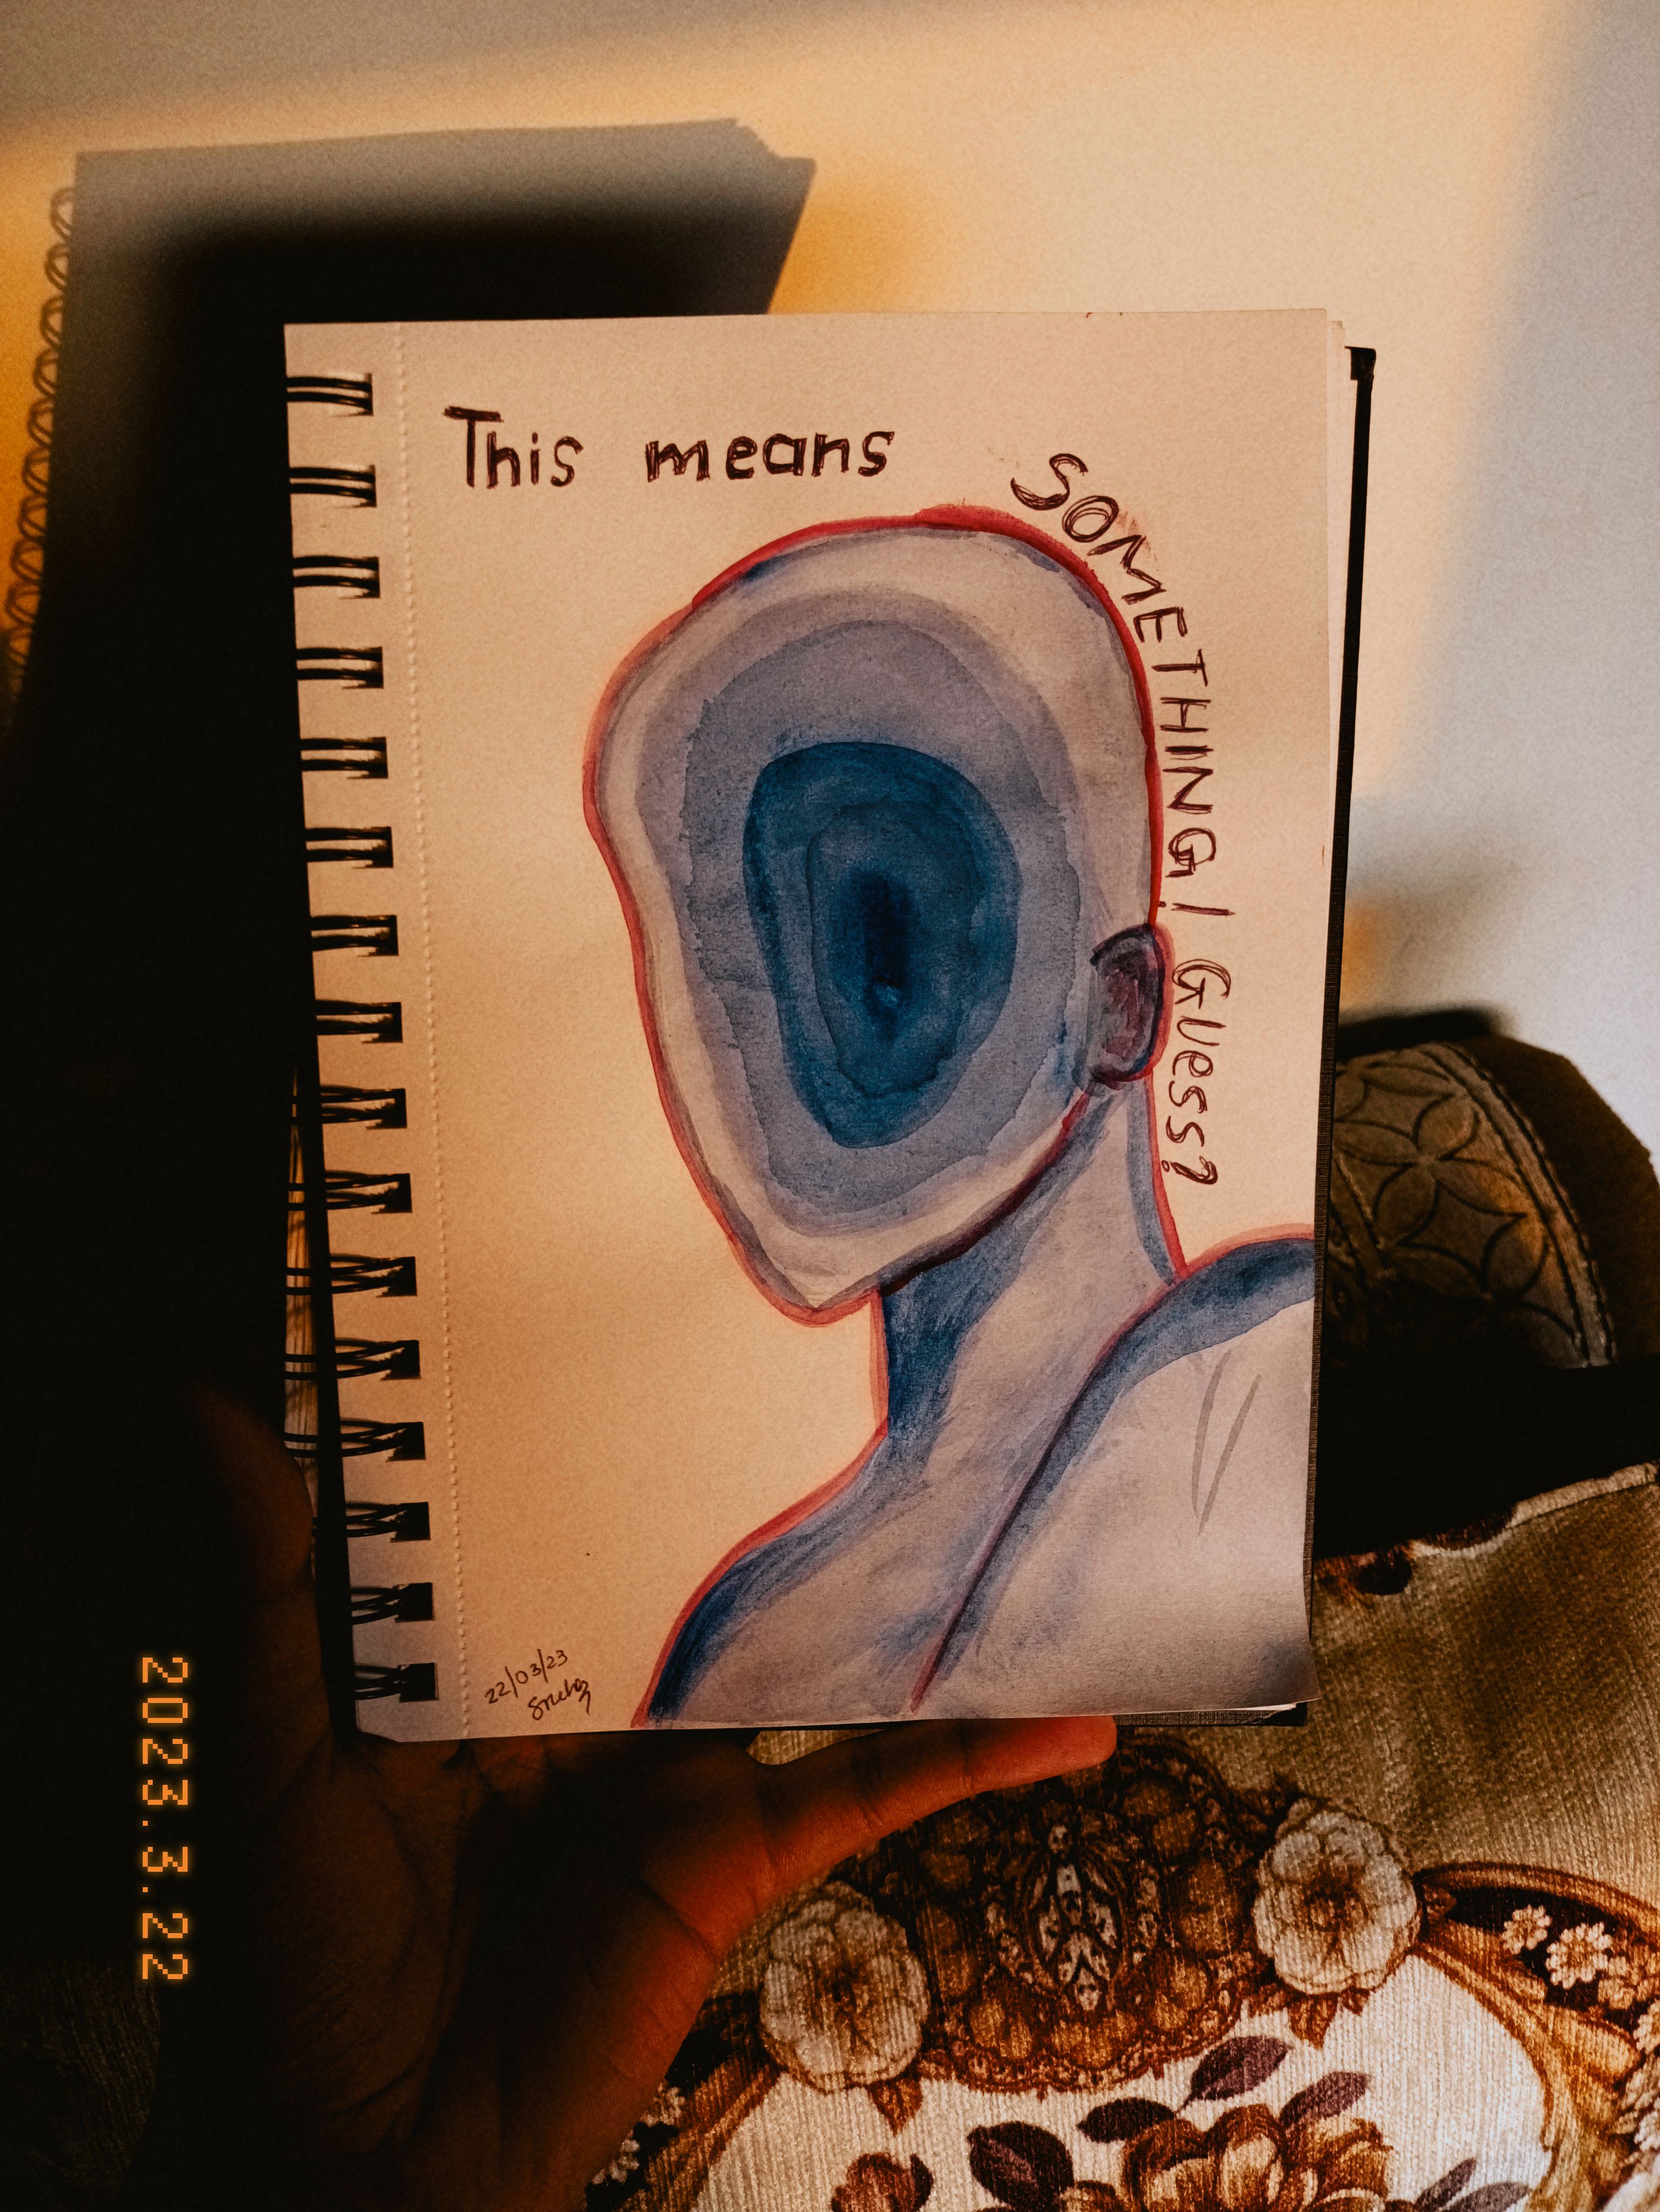 This means
SOMETHING! GUess?
22/03/23
2023.3.22